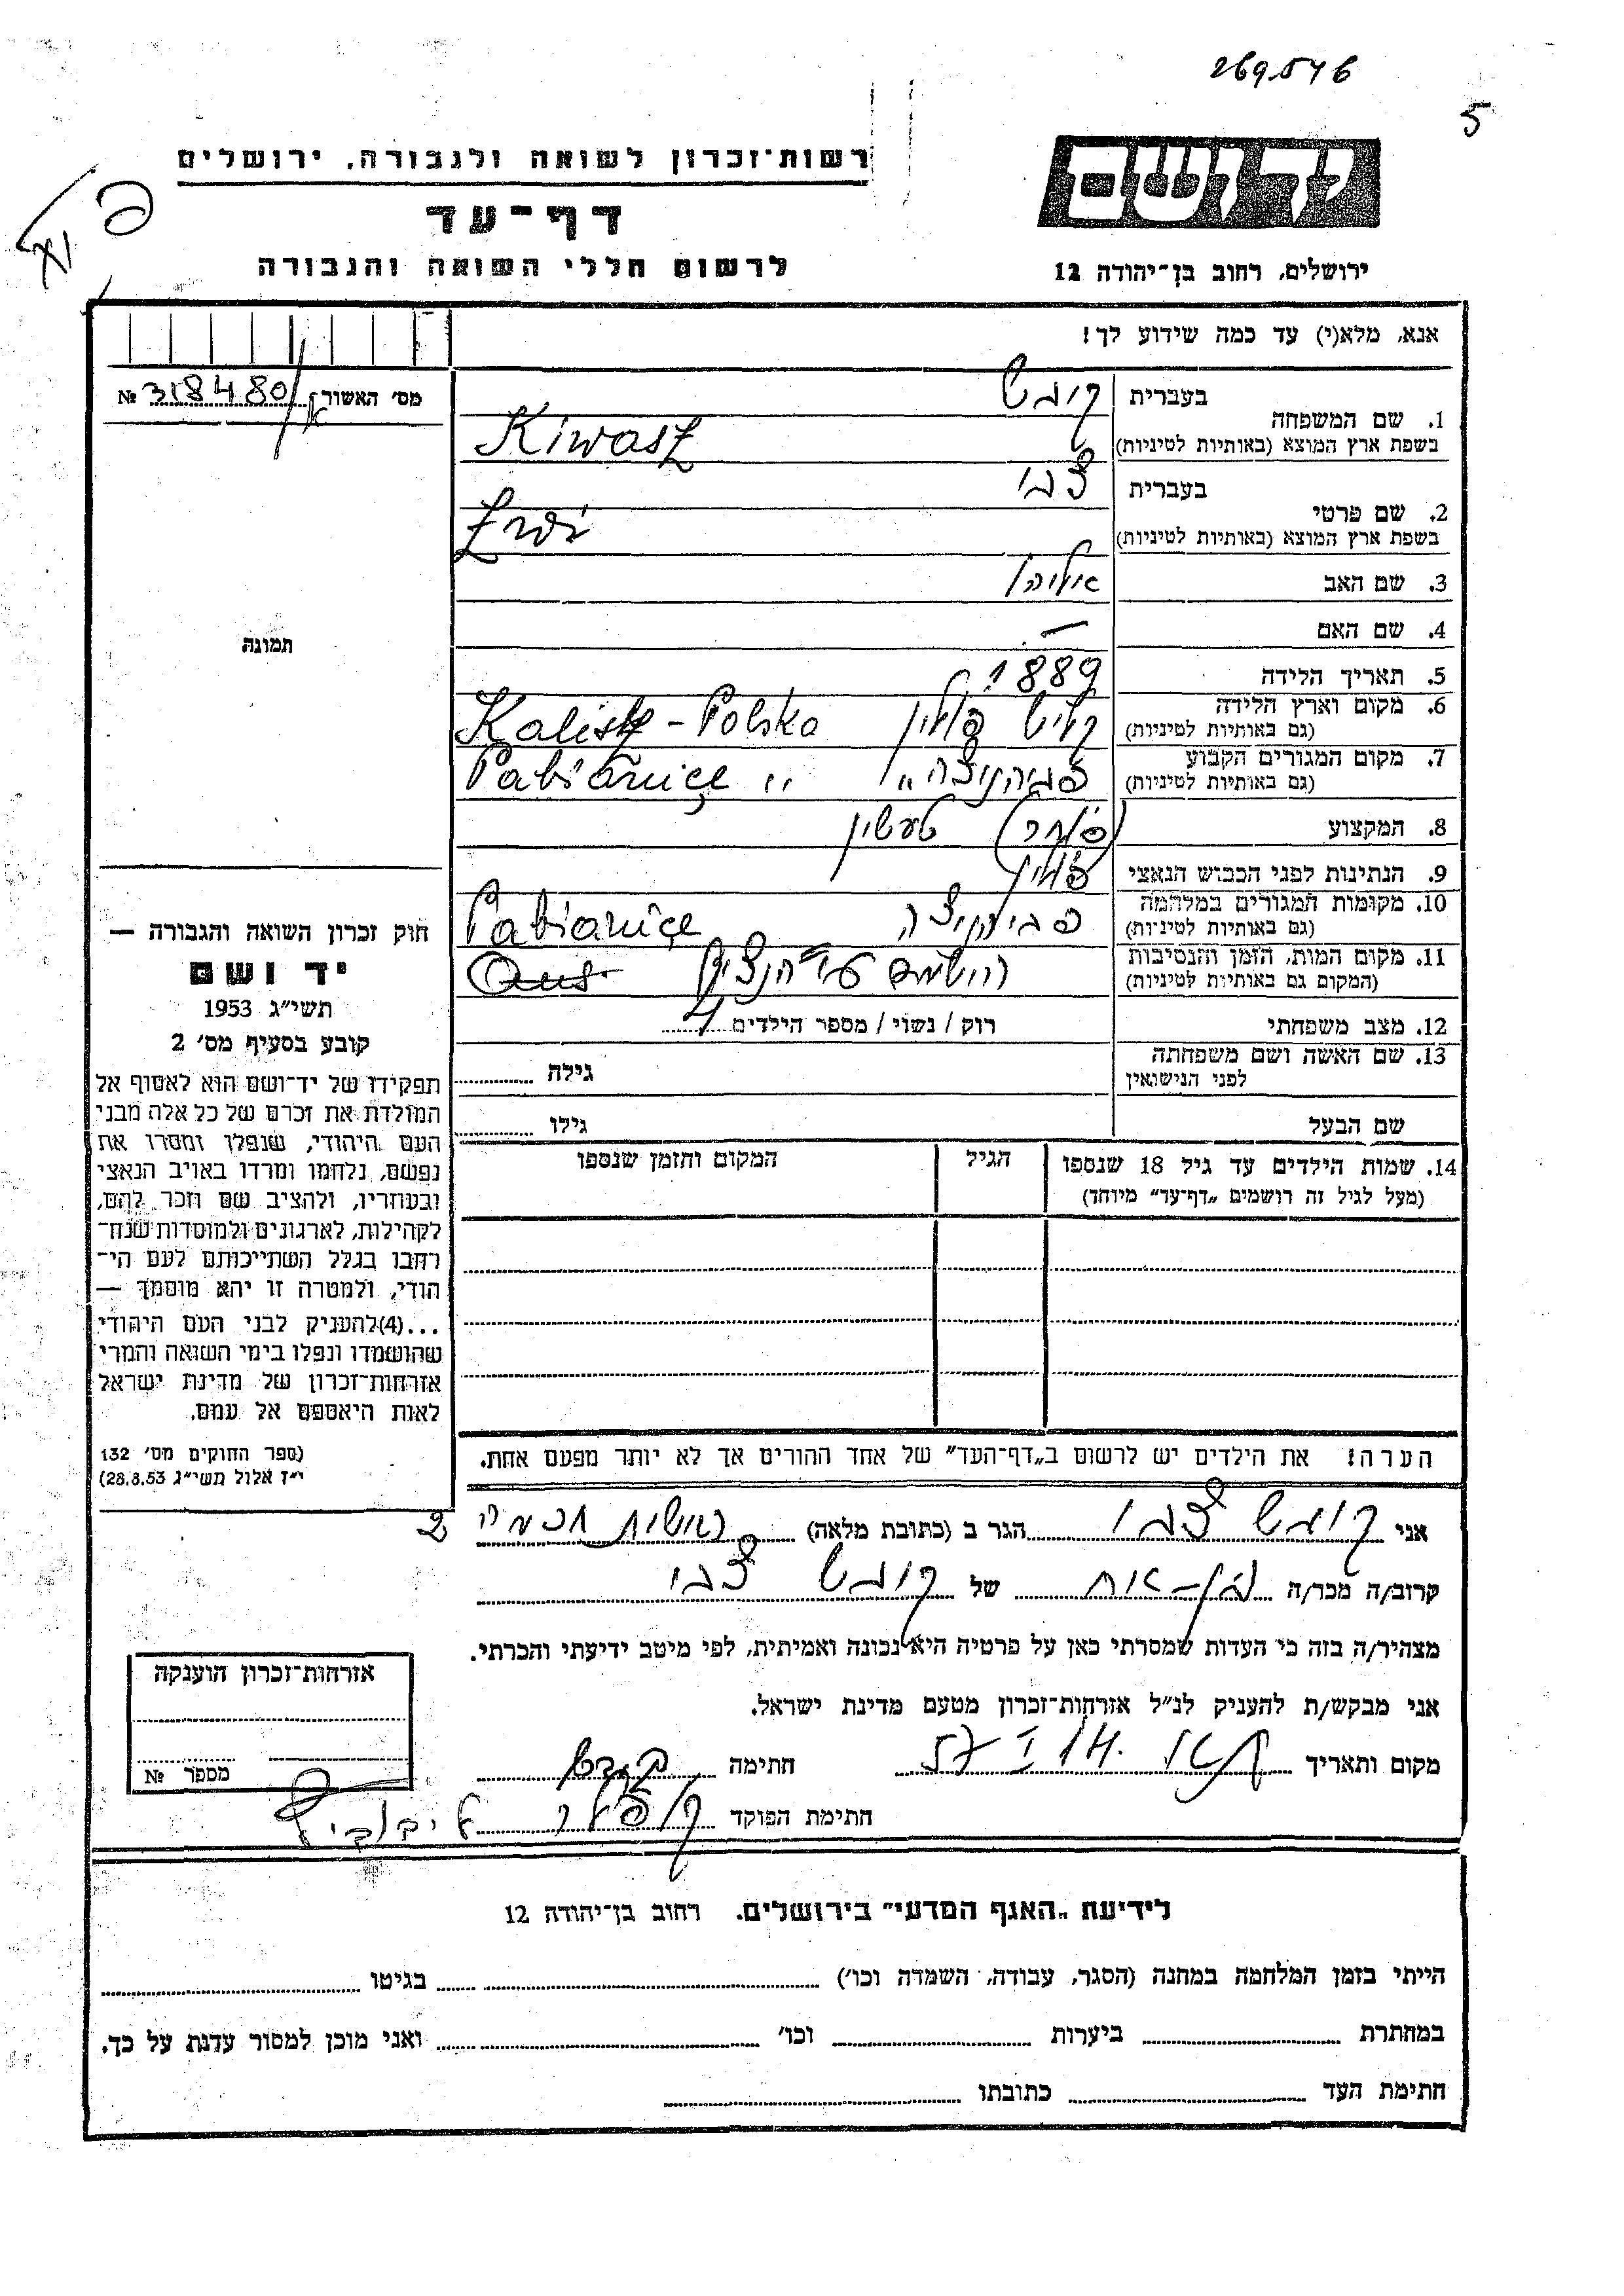 269546
5
רשות־זכרון לשואה ולגבורה. ירושלים
יד ושם
דף־עד
לרשום חללי השואה והגבורה
ירושלים, רחוב בן־יהודה 12
אנא, מלא(י) עד כמה שידוע לך!
מס׳ האשור 318480 №
תמונה
בעברית קובש
1. שם המשפחה
בשפת ארץ המוצא (באותיות לטיניות) Kiwasz
בעברית צבי
2. שם פרטי
בשפת ארץ המוצא (באותיות לטיניות) Zrvi
3. שם האב אליהו
4. שם האם —
5. תאריך הלידה 1889
6. מקום וארץ הלידה
(גם באותיות לטיניות) קליש פולין Kalisz - Polska
7. מקום המגורים הקבוע
(גם באותיות לטיניות) פביניצה " Pabianice "
8. המקצוע (סוחר)
9. הנתינות לפני הכבוש הנאצי פולין
10. מקומות המגורים במלחמה
(גם באותיות לטיניות) פביניצה Pabianice
11. מקום המות, הזמן והנסיבות
(המקום גם באותיות לטיניות) הושמם ע״י הנצים
12. מצב משפחתי רוק / נשוי / מספר הילדים 4
13. שם האשה ושם משפחתה
לפני הנישואין גילה
שם הבעל גילו
14. שמות הילדים עד גיל 18 שנספו
(מעל לגיל זה רושמים „דף־עד״ מיוחד)
הגיל
המקום והזמן שנספו
חוק זכרון השואה והגבורה —
יד ושם
תשי״ג 1953
קובע בסעיף מס׳ 2
תפקידו של יד־ושם הוא לאסוף אל
המולדת את זכרם של כל אלה מבני
העם היהודי, שנפלו ומסרו את
נפשם, נלחמו ומרדו באויב הנאצי
ובעוזריו, ולהציב שם וזכר להם,
לקהילות, לארגונים ולמוסדות שנח־
רחבו בגלל השתייכותם לעם הי־
הודי, ולמטרה זו יהא מוסמך —
...(4)להעניק לבני העם היהודי
שהושמדו ונפלו בימי השואה והמרי
אזרחות־זכרון של מדינת ישראל
לאות היאספם אל עמם.
(ספר החוקים מס׳ 132
י״ז אלול תשי״ג 28.8.53)
הערה! את הילדים יש לרשום ב„דף־העד״ של אחד ההורים אך לא יותר מפעם אחת.
אני קובש צבי הגר ב (כתובת מלאה) 2
קרוב/ה מכר/ה בן-אח של קובש צבי
מצהיר/ה בזה כי העדות שמסרתי כאן על פרטיה היא נכונה ואמיתית, לפי מיטב ידיעתי והכרתי.
אני מבקש/ת להעניק לנ״ל אזרחות־זכרון מטעם מדינת ישראל.
מקום ותאריך חתימה
חתימת הפוקד
אזרחות־זכרון הוענקה
מספר №
לידיעת „האגף המדעי״ בירושלים. רחוב בן־יהודה 12
הייתי בזמן המלחמה במחנה (הסגר, עבודה, השמדה וכו׳) בגיטו
במחתרת ביערות וכו׳ ואני מוכן למסור עדות על כך.
חתימת העד כתובתו